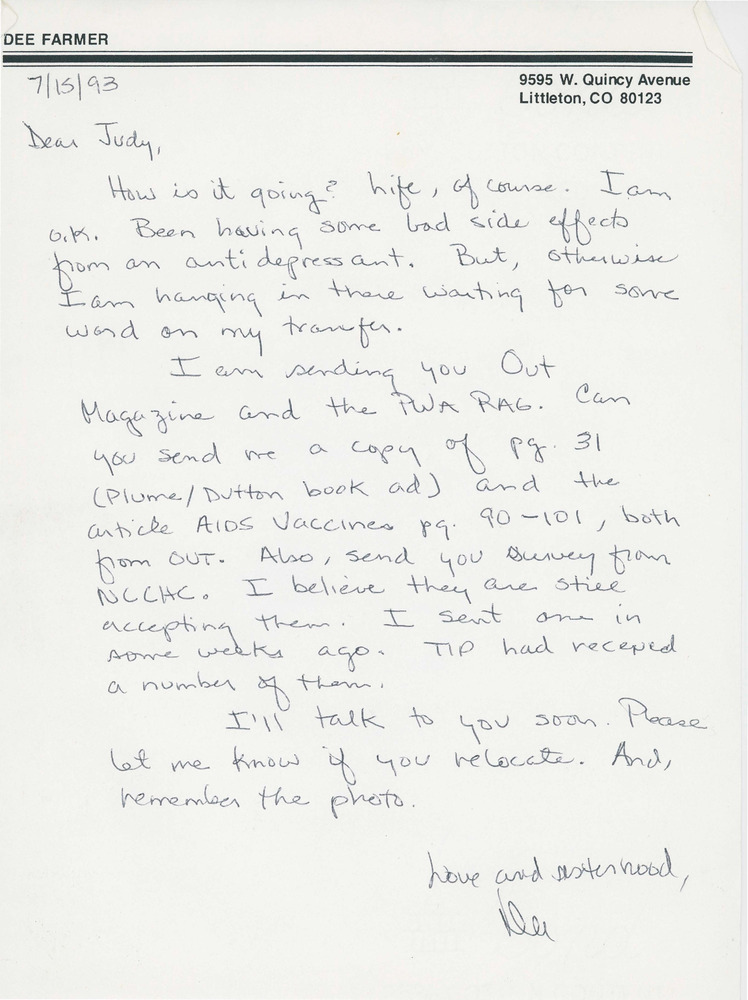 DEE FARMER
9595 W. Quincy Avenue
Littleton, CO 80123
7/15/93
Dear Judy,
How is it going? Life, of course. I am
O.K. Been having some bad side effects
from an antidepressant. But, otherwise
I am hanging in there waiting for some
word on my transfer.
I am sending you Out
Magazine and the PWA RAG. Can
you send me a copy of pg. 31
(Plume/Dutton book ad) and the
article AIDS Vaccines pg. 90-101, both
from OUT. Also, send you survey from
NCCHC. I believe they are still
accepting them. I sent one in
some weeks ago. TIP had receped
a number of them.
I'll talk to you soon. Please
let me know if you relocate. And,
remember the photo.
Love and sisterhood,
Dee